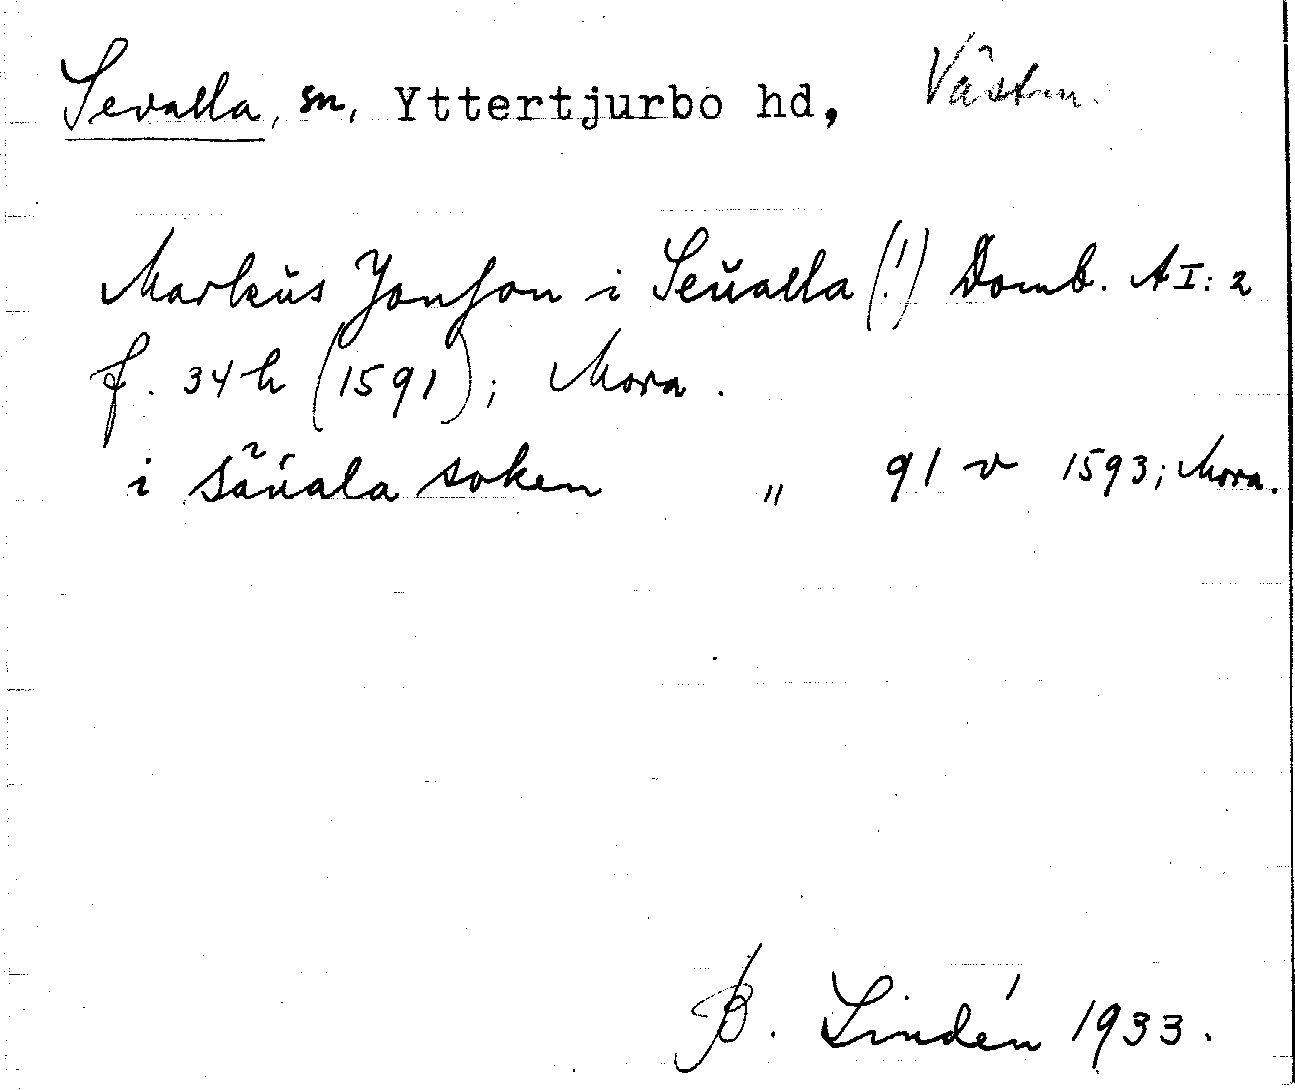 Sevalla, sn, Yttertjurbo hd, Västm.
Markŭs Jonson i Seŭalla (!) Domb. A I: 2
f. 34 h (1591); Mora.
i säŭala soken " 91 v 1593; Mora.
B. Lindén 1933.